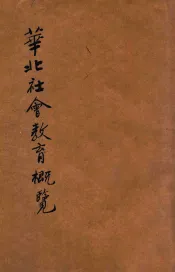 華北社會教育概覽